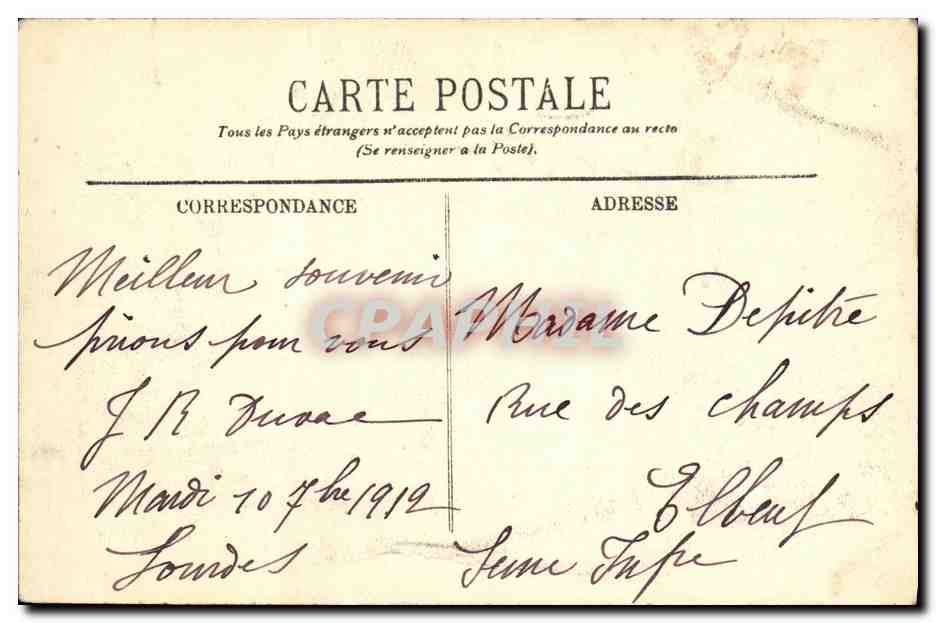 CARTE POSTALE
Tous les Pays étrangers n'acceptent pas la Correspondance au recto
(Se renseigner a la Poste).
CORRESPONDANCE
ADRESSE
Meilleur souvenir
prions pour vous
J R Duval
Mardi 10 7bre 1912
Lourdes
Madame Depitre
Rue des champs
Elbeuf
Seine Infre
CPAPHIL